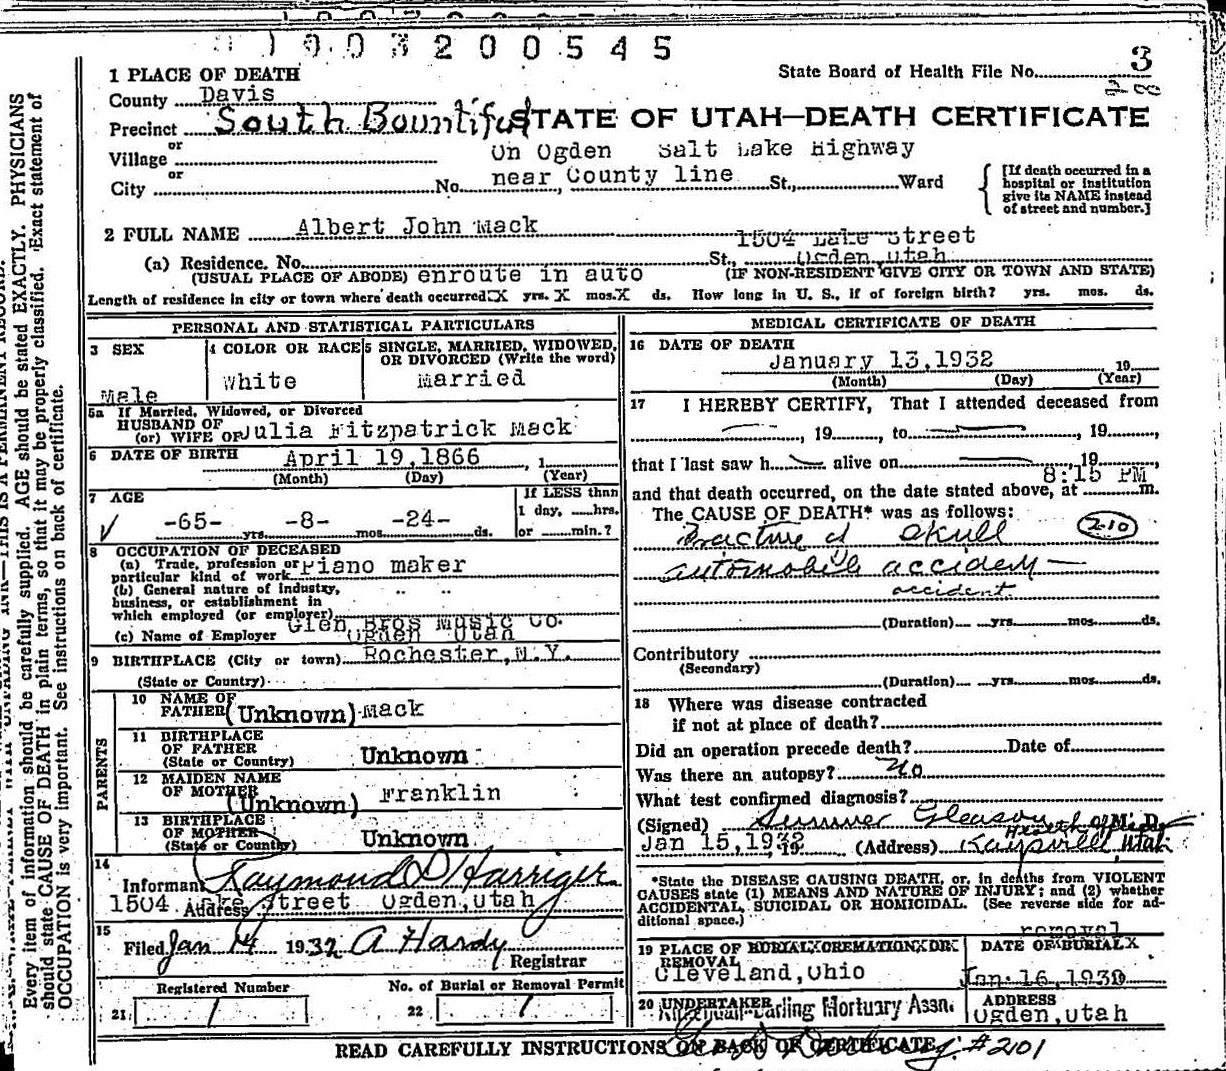 1003200545
1 PLACE OF DEATH
State Board of Health File No. 3
County Davis
Precinct South Bountiful
STATE OF UTAH—DEATH CERTIFICATE
or
Village
On Ogden Salt Lake Highway
or
City No. near County line St., Ward
[If death occurred in a hospital or institution give its NAME instead of street and number.]
2 FULL NAME Albert John Mack
1504 Lake Street
(a) Residence. No. St., Ogden, Utah
(USUAL PLACE OF ABODE) enroute in auto (IF NON-RESIDENT GIVE CITY OR TOWN AND STATE)
Length of residence in city or town where death occurred X yrs. X mos. X ds. How long in U. S., if of foreign birth? yrs. mos. ds.
PERSONAL AND STATISTICAL PARTICULARS
3 SEX
Male
4 COLOR OR RACE
White
5 SINGLE, MARRIED, WIDOWED, OR DIVORCED (Write the word)
Married
5a If Married, Widowed, or Divorced
HUSBAND OF
(or) WIFE OF Julia Fitzpatrick Mack
6 DATE OF BIRTH April 19,1866 , 1
(Month) (Day) (Year)
7 AGE
-65- yrs. -8- mos. -24- ds.
If LESS than
1 day, hrs.
or min.?
8 OCCUPATION OF DECEASED
(a) Trade, profession or
particular kind of work Piano maker
(b) General nature of industry,
business, or establishment in
which employed (or employer)
Glen Bros Music Co.
(c) Name of Employer Ogden Utah
9 BIRTHPLACE (City or town) Rochester,N.Y.
(State or Country)
PARENTS
10 NAME OF
FATHER (Unknown) Mack
11 BIRTHPLACE
OF FATHER
(State or Country) Unknown
12 MAIDEN NAME
OF MOTHER (Unknown) Franklin
13 BIRTHPLACE
OF MOTHER
(State or Country) Unknown
14
Informant Raymond D Harriger
Address 1504 Lake Street Ogden,Utah
15
Filed Jan 14 1932 A Hardy
Registrar
Registered Number
21 1
No. of Burial or Removal Permit
22 1
MEDICAL CERTIFICATE OF DEATH
16 DATE OF DEATH
January 13,1932 19
(Month) (Day) (Year)
17 I HEREBY CERTIFY, That I attended deceased from
, 19 , to , 19 ,
that I last saw h alive on , 19 ,
8:15 PM
and that death occurred, on the date stated above, at m.
The CAUSE OF DEATH* was as follows:
Fracture of Skull 210
automobile accident —
accident.
(Duration) yrs. mos. ds.
Contributory
(Secondary)
(Duration) yrs. mos. ds.
18 Where was disease contracted
if not at place of death?
Did an operation precede death? Date of
Was there an autopsy? No
What test confirmed diagnosis?
(Signed) Sumner Gleason M. D.
Health officer
Jan 15,1932 19 (Address) Kaysville, Utah
*State the DISEASE CAUSING DEATH, or, in deaths from VIOLENT
CAUSES state (1) MEANS AND NATURE OF INJURY; and (2) whether
ACCIDENTAL, SUICIDAL OR HOMICIDAL. (See reverse side for ad-
ditional space.)
removal
19 PLACE OF BURIAL, CREMATION, OR
REMOVAL
Cleveland,Ohio
DATE OF BURIAL
Jan. 16,1930
20 UNDERTAKER
Darling Mortuary Assn.
ADDRESS
Ogden,Utah
READ CAREFULLY INSTRUCTIONS ON BACK OF CERTIFICATE
#2101
Every item of information should be carefully supplied. AGE should be stated EXACTLY. PHYSICIANS
should state CAUSE OF DEATH in plain terms, so that it may be properly classified. Exact statement of
OCCUPATION is very important. See instructions on back of certificate.